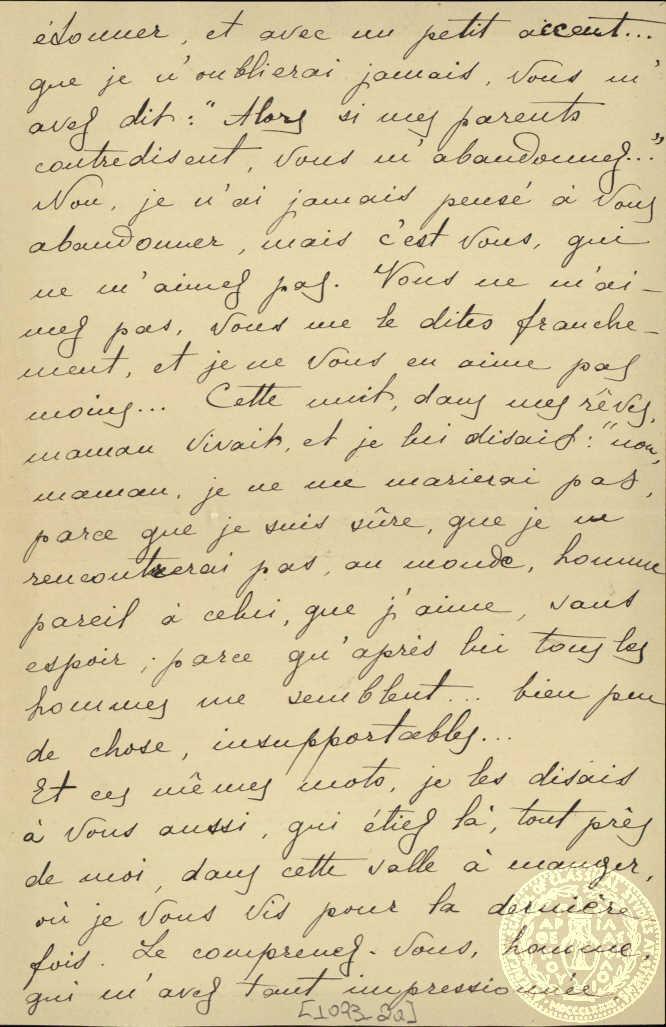 étonner, et avec un petit accent...
que je n'oublierai jamais, Vous m'
avez dit: "Alors si mes parents
contredisent, Vous m'abandonnez..."
Non, je n'ai jamais pensé à Vous
abandonner, mais c'est Vous, qui
ne m'aimez pas. Vous ne m'ai-
mez pas, Vous me le dites franche-
ment, et je ne Vous en aime pas
moins... Cette nuit, dans mes rêves,
maman vivait, et je lui disais: "non,
maman, je ne me marierai pas,
parce que je suis sûre, que je ne
rencontrerai pas, au monde, homme
pareil à celui, que j'aime, sans
espoir; parce qu'après lui tous les
hommes me semblent... bien peu
de chose, insupportables...
Et ces mêmes mots, je les disais
à Vous aussi, qui étiez là, tout près
de moi, dans cette salle à manger,
où je Vous vis pour la dernière
fois. Le comprenez-Vous, homme,
qui m'avez tant impressionnée
[1093-2a]